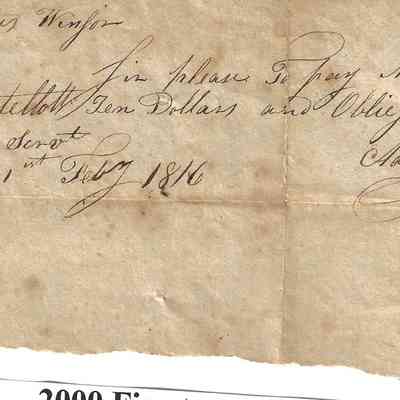 Winsor
Sir please To pay
Ten Dollars and Oblig
Servt
1st Feby 1816
2000